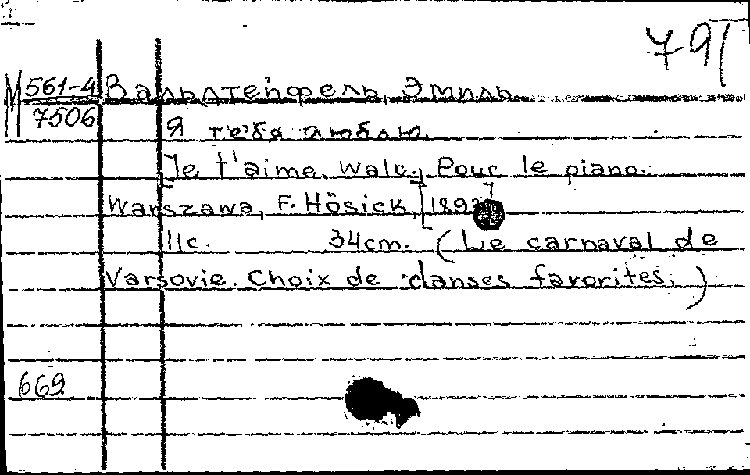 791
М 561-4 Вальдтейфель, Эмиль
7506
Я тебя люблю.
[Je t'aime. Walc.] Pour le piano.
Warszawa, F. Hösick, [189
11c. 34cm. (Le carnaval de
Varsovie. Choix de danses favorites.)
669